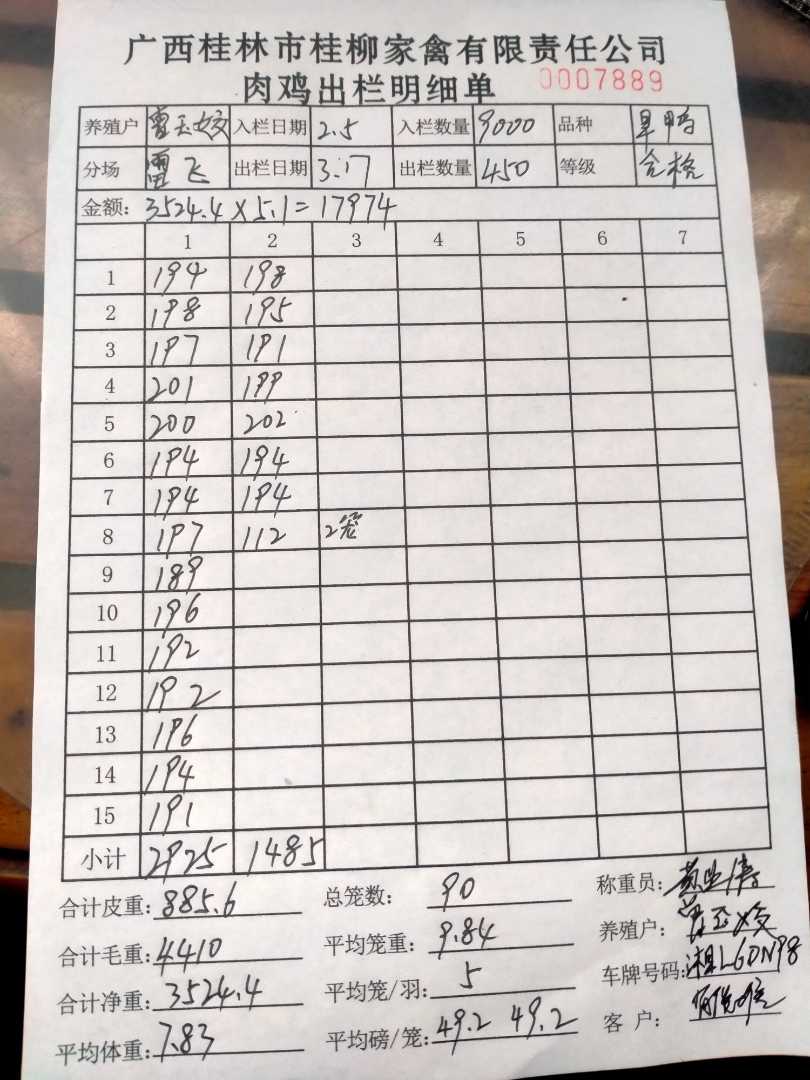 广西桂林市桂柳家禽有限责任公司
肉鸡出栏明细单 0007889
养殖户 曹玉姣 入栏日期 2.5 入栏数量 9000 品种 旱鸭
分场 雷飞 出栏日期 3.17 出栏数量 450 等级 合格
金额: 3524.4×5.1=17974
1 2 3 4 5 6 7
1 194 198
2 198 195
3 197 191
4 201 199
5 200 202
6 194 194
7 194 194
8 197 112 2笼
9 189
10 196
11 192
12 192
13 196
14 194
15 191
小计 2925 1485
合计皮重: 885.6 总笼数: 90 称重员:
合计毛重: 4410 平均笼重: 9.84 养殖户: 曹玉姣
合计净重: 3524.4 平均笼/羽: 5 车牌号码: 湘LGDN98
平均体重: 7.83 平均磅/笼: 49.2 49.2 客户: